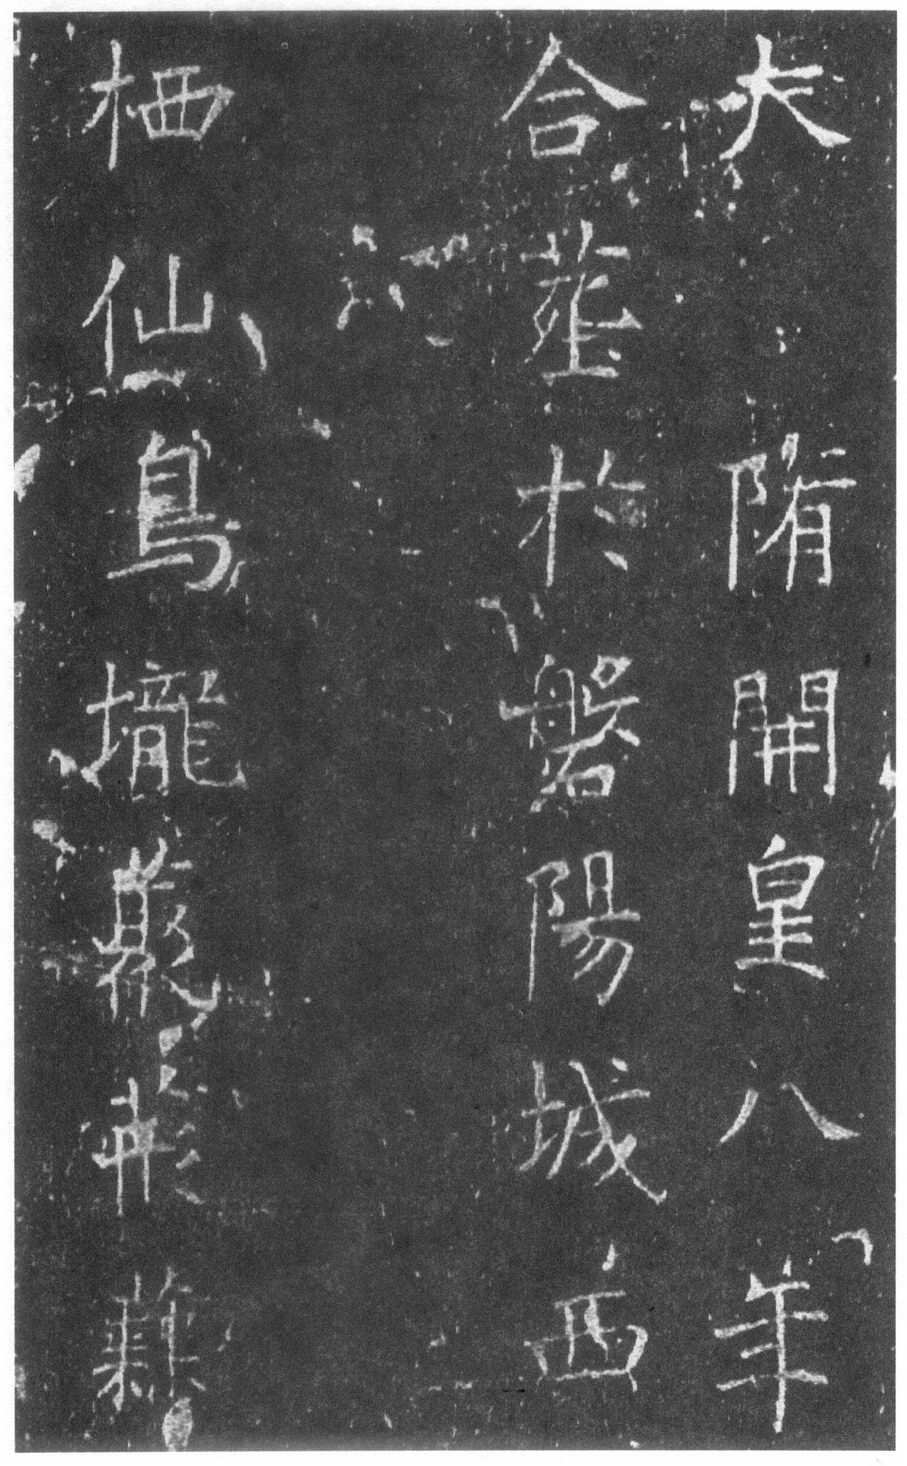 大隋開皇八年
合葬於磐陽城西
栖仙鳥壠